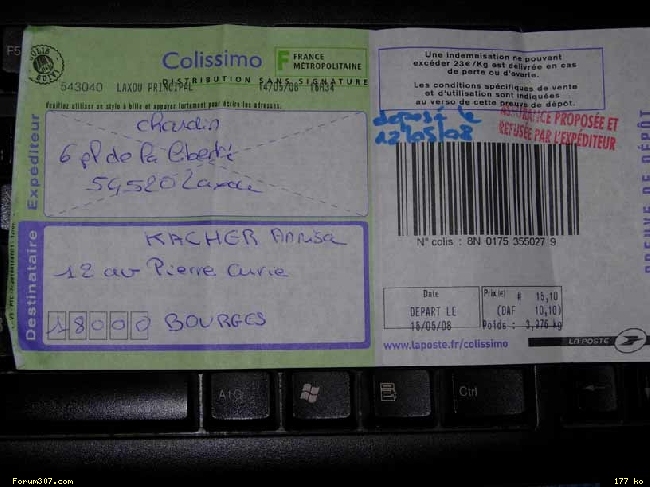 F5
Colissimo
F FRANCE MÉTROPOLITAINE
DISTRIBUTION SANS SIGNATURE
543040 LAXOU PRINCIPAL 14/05/08 16H34
Veuillez utiliser un stylo à bille et appuyer fortement pour écrire les adresses.
Expéditeur
Chardin
6 pl de la liberté
54520 Laxou
Destinataire
KACHER Anissa
12 av Pierre Curie
18000 BOURGES
Une indemnisation ne pouvant
excéder 23€/Kg est délivrée en cas
de perte ou d'avarie.
Les conditions spécifiques de vente
et d'utilisation sont indiquées
au verso de cette preuve de dépôt.
déposé le
ASSURANCE PROPOSÉE ET
REFUSÉE PAR L'EXPÉDITEUR
N° colis : 8N 0175 355027 9
Date
DEPART LE
Prix
Poids :
www.laposte.fr/colissimo
LA POSTE
PREUVE DE DÉPÔT
Ctrl
Forum307.com
177 ko